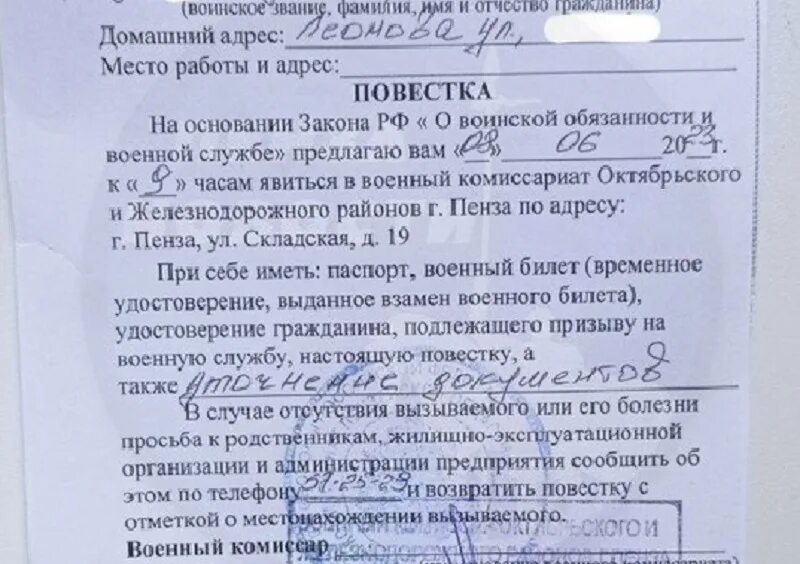 (воинское звание, фамилия, имя и отчество гражданина)
Домашний адрес: Леонова ул.,
Место работы и адрес:
ПОВЕСТКА
На основании Закона РФ « О воинской обязанности и
военной службе» предлагаю вам «08» 06 2023 г.
к « 9 » часам явиться в военный комиссариат Октябрьского
и Железнодорожного районов г. Пенза по адресу:
г. Пенза, ул. Складская, д. 19
При себе иметь: паспорт, военный билет (временное
удостоверение, выданное взамен военного билета),
удостоверение гражданина, подлежащего призыву на
военную службу, настоящую повестку, а
также уточнение документов
В случае отсутствия вызываемого или его болезни
просьба к родственникам, жилищно-эксплуатационной
организации и администрации предприятия сообщить об
этом по телефону 51-25-29 и возвратить повестку с
отметкой о местонахождении вызываемого.
Военный комиссар
ОКТЯБРЬСКОГО И
ЖЕЛЕЗНОДОРОЖНОГО РАЙОНОВ Г.ПЕНЗА